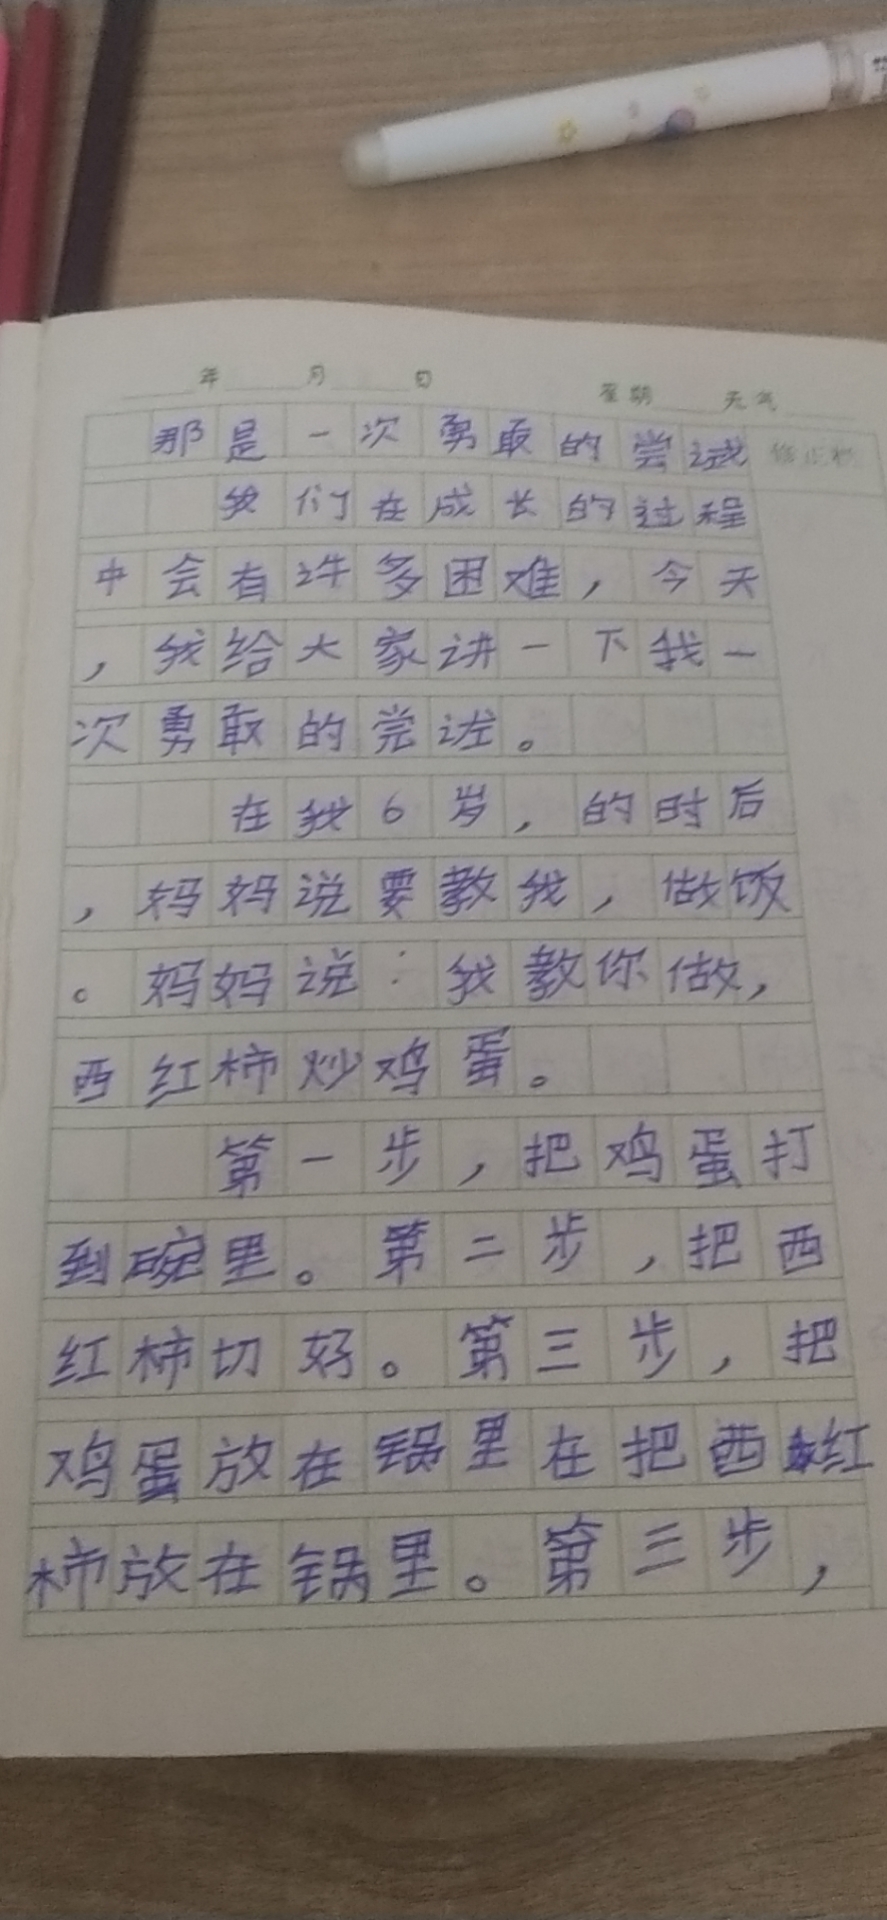 年 月 日 星期 天气
那是一次勇敢的尝试
我们在成长的过程
中会有许多困难，今天
，我给大家讲一下我一
次勇敢的尝试。
在我6岁，的时后
，妈妈说要教我，做饭
。妈妈说：我教你做，
西红柿炒鸡蛋。
第一步，把鸡蛋打
到碗里。第二步，把西
红柿切好。第三步，把
鸡蛋放在锅里在把西红
柿放在锅里。第三步，